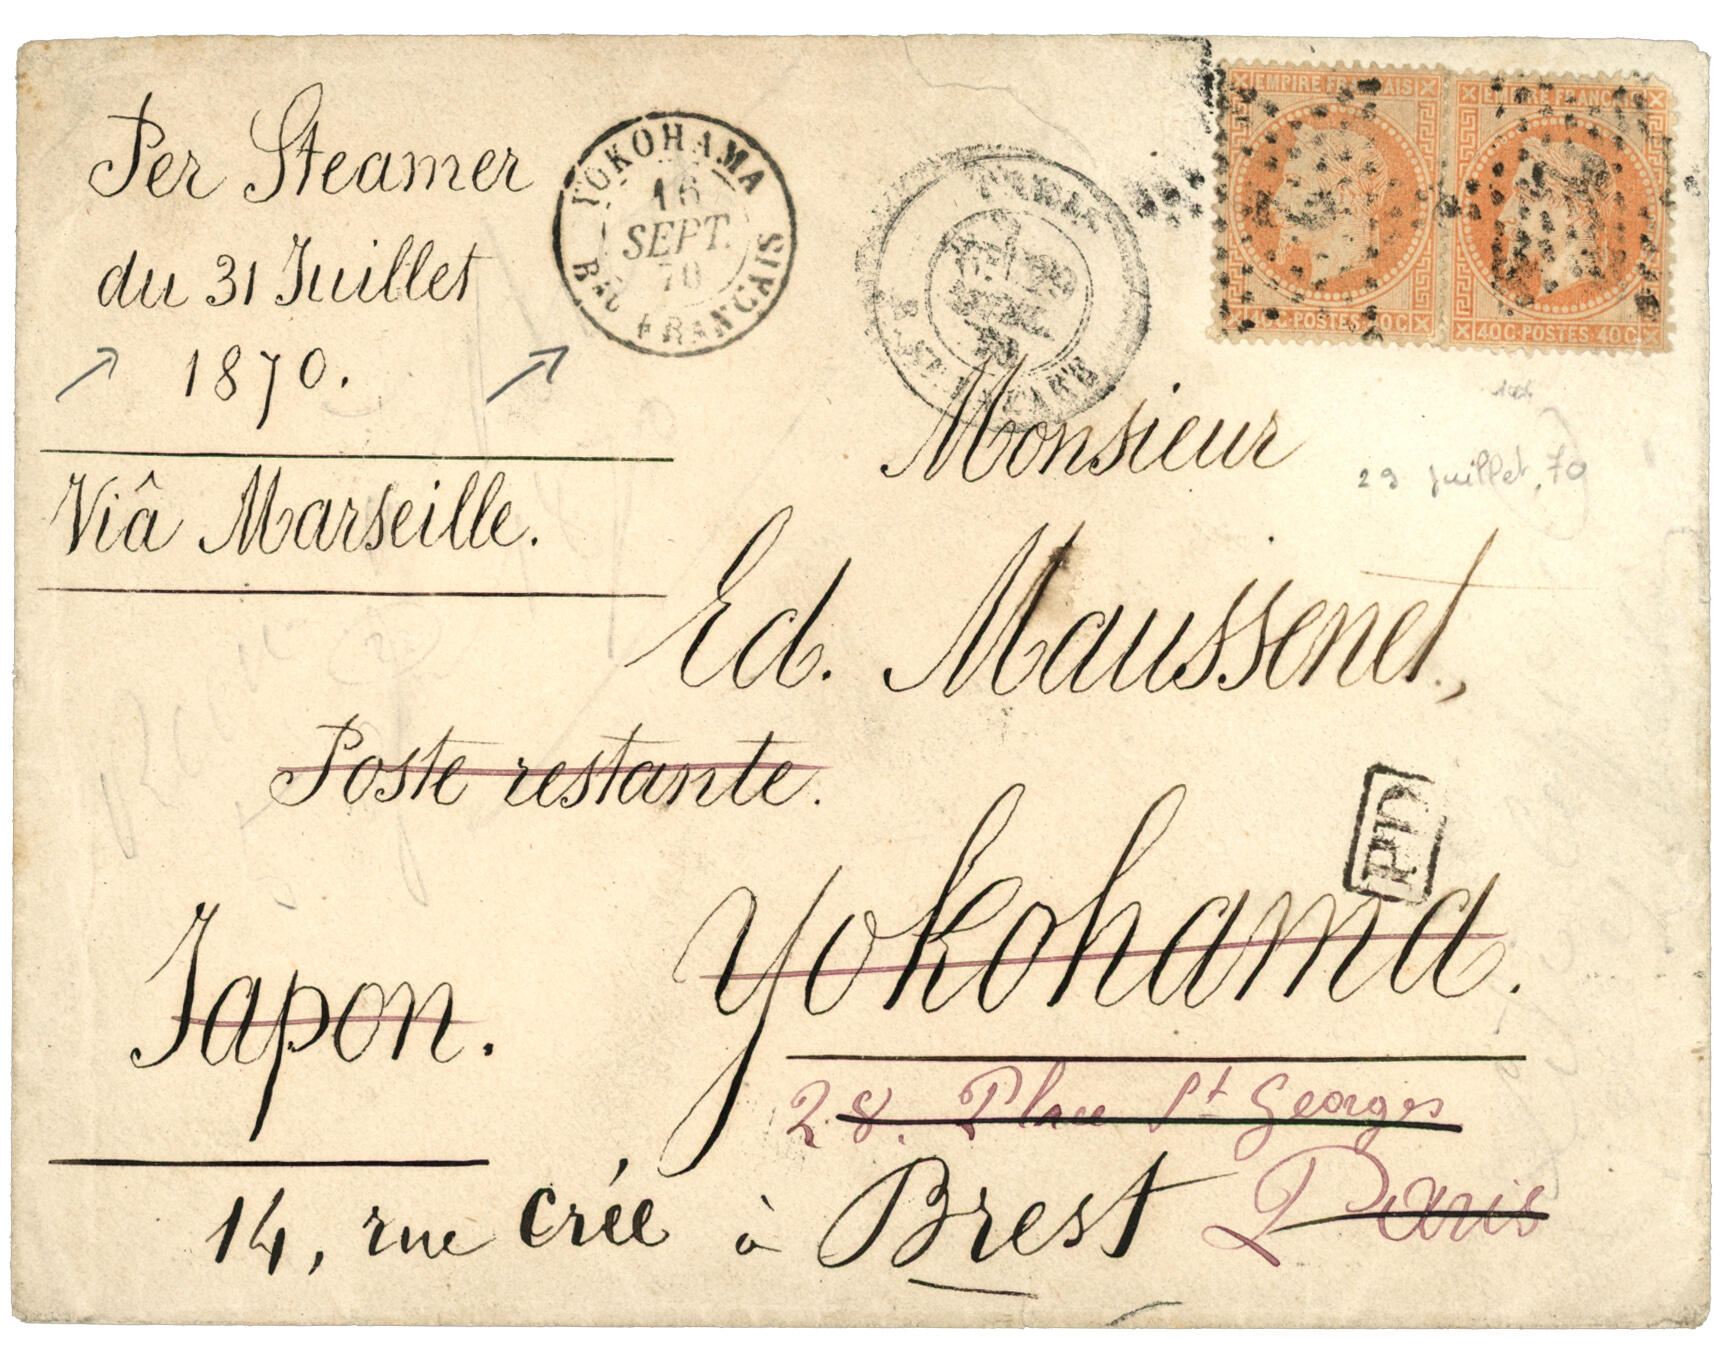 Per Steamer
du 31 Juillet
1870.
Viâ Marseille.
YOKOHAMA
16
SEPT.
70
Bau FRANCAIS
EMPIRE FRANÇAIS
40C·POSTES·40C
EMPIRE FRANÇAIS
40C·POSTES·40C
Monsieur
29 Juillet, 70
Ed. Maussenet,
Poste restante.
PD
Yokohama.
Japon.
28. Place St Georges
Paris
14, rue Crée à Brest